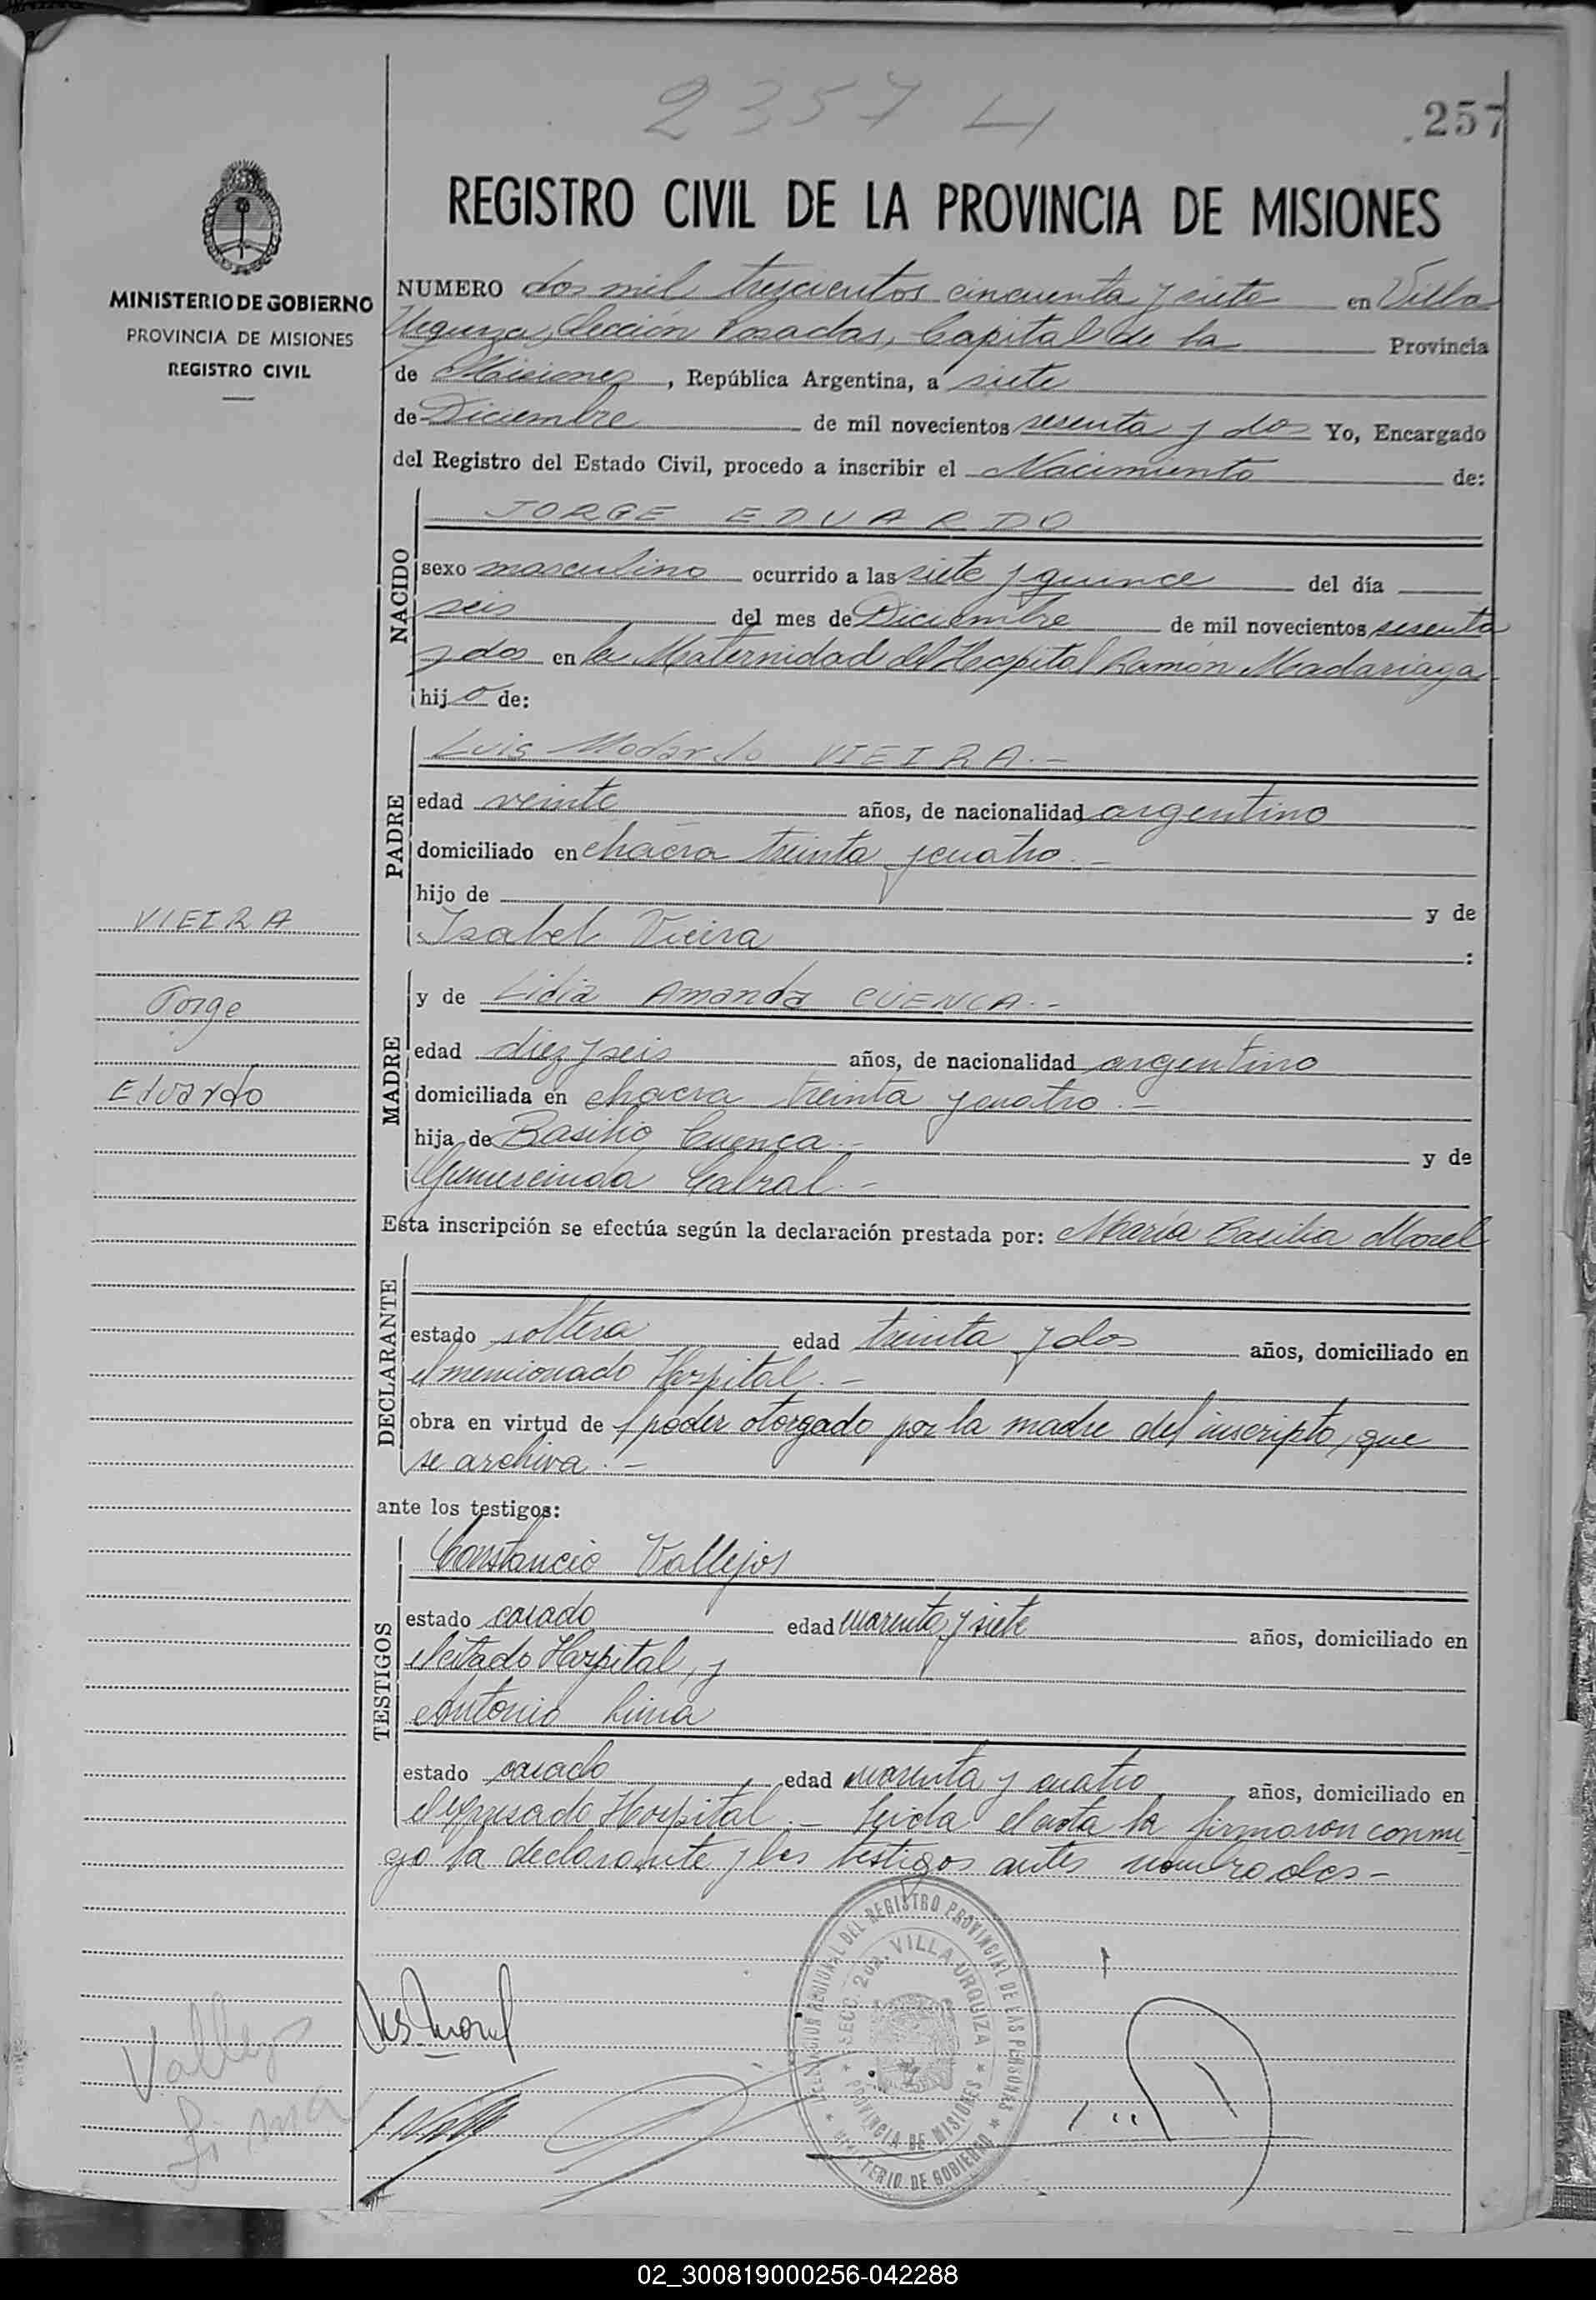 2357 L
257
REGISTRO CIVIL DE LA PROVINCIA DE MISIONES
MINISTERIO DE GOBIERNO
PROVINCIA DE MISIONES
REGISTRO CIVIL
NUMERO dos mil trescientos cincuenta y siete en Villa
Urquiza, Sección Posadas, Capital de la Provincia
de Misiones, República Argentina, a siete
de Diciembre de mil novecientos sesenta y dos Yo, Encargado
del Registro del Estado Civil, procedo a inscribir el Nacimiento de:
NACIDO
JORGE EDUARDO
sexo masculino ocurrido a las siete y quince del día
seis del mes de Diciembre de mil novecientos sesenta
y dos en la Maternidad del Hospital Ramón Madariaga
hijo de:
PADRE
Luis Modardo VIEIRA.-
edad veinte años, de nacionalidad argentino
domiciliado en chacra treinta y cuatro.-
hijo de y de
Isabel Vieira :
MADRE
y de Lidia Amanda CUENCA.-
edad diez y seis años, de nacionalidad argentino
domiciliada en chacra treinta y cuatro.-
hija de Basilio Cuenca.- y de
Gumercinda Cabral.-
VIEIRA
Jorge
Eduardo
Esta inscripción se efectúa según la declaración prestada por: María Basilia Morel
DECLARANTE
estado soltera edad treinta y dos años, domiciliado en
el mencionado Hospital.-
obra en virtud de poder otorgado por la madre del inscripto, que
se archiva.-
ante los testigos:
TESTIGOS
Constancio Vallejos
estado casado edad cuarenta y siete años, domiciliado en
el citado Hospital, y
Antonio Lima
estado casado edad cuarenta y cuatro años, domiciliado en
el expresado Hospital.- Leida el acta la firmaron conmi
go la declarante y los testigos antes nombrados-
DELEGACION REGIONAL DEL REGISTRO PROVINCIAL DE LAS PERSONAS
SECC. 2da. VILLA URQUIZA
PROVINCIA DE MISIONES
MINISTERIO DE GOBIERNO
Morel
Vallejo
Lima
02_300819000256-042288